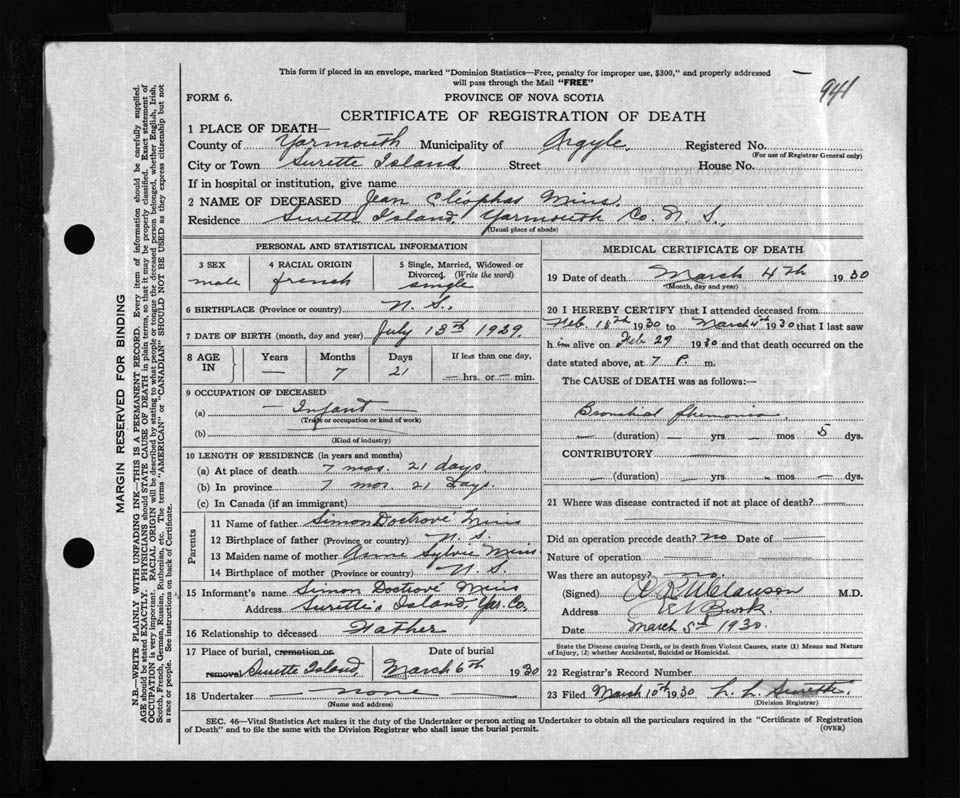 This form if placed in an envelope, marked "Dominion Statistics—Free, penalty for improper use, $300," and properly addressed
will pass through the Mail "FREE"
941
FORM 6.
PROVINCE OF NOVA SCOTIA
CERTIFICATE OF REGISTRATION OF DEATH
1 PLACE OF DEATH—
County of Yarmouth Municipality of Argyle, Registered No.
(For use of Registrar General only)
City or Town Surette Island Street House No.
If in hospital or institution, give name
2 NAME OF DECEASED Jean Cléophas Mius.
Residence Surette Island, Yarmouth Co. N. S.,
(Usual place of abode)
PERSONAL AND STATISTICAL INFORMATION
3 SEX
male
4 RACIAL ORIGIN
french
5 Single, Married, Widowed or
Divorced. (Write the word)
single
6 BIRTHPLACE (Province or country) N. S.,
7 DATE OF BIRTH (month, day and year) July 13th 1929.
8 AGE IN
Years Months Days If less than one day,
— 7 21 — hrs. or — min.
9 OCCUPATION OF DECEASED
(a) — Infant —
(Trade or occupation or kind of work)
(b)
(Kind of industry)
10 LENGTH OF RESIDENCE (in years and months)
(a) At place of death 7 mos. 21 days.
(b) In province 7 mos. 21 days.
(c) In Canada (if an immigrant)
Parents
11 Name of father Simon Doctrové Mius
12 Birthplace of father (Province or country) N. S.
13 Maiden name of mother Anne Sylvie Mius
14 Birthplace of mother (Province or country) N. S.
15 Informant's name Simon Doctrové Mius
Address Surette's Island, Yar. Co.
16 Relationship to deceased Father
17 Place of burial, cremation or
removal Surette Island
Date of burial
March 6th 1930
18 Undertaker — none —
(Name and address)
MEDICAL CERTIFICATE OF DEATH
19 Date of death March 4th 1930
(Month, day and year)
20 I HEREBY CERTIFY that I attended deceased from
Feb. 18th 1930 to March 4th 1930 that I last saw
him alive on Feb 29 1930 and that death occurred on the
date stated above, at 7 P. m.
The CAUSE of DEATH was as follows:—
Bronchial
— (duration) — yrs — mos 5 dys.
CONTRIBUTORY
— (duration) — yrs — mos — dys.
21 Where was disease contracted if not at place of death?
Did an operation precede death? no Date of
Nature of operation
Was there an autopsy? no.
(Signed) M.D.
Address
Date March 5th 1930.
State the Disease causing Death, or in death from Violent Causes, state (1) Means and Nature
of Injury, (2) whether Accidental, Suicidal or Homicidal.
22 Registrar's Record Number
23 Filed March 10th 1930 L. L. Surette.
(Division Registrar)
SEC. 46—Vital Statistics Act makes it the duty of the Undertaker or person acting as Undertaker to obtain all the particulars required in the "Certificate of Registration
of Death" and to file the same with the Division Registrar who shall issue the burial permit.
(OVER)
MARGIN RESERVED FOR BINDING
N.B.—WRITE PLAINLY WITH UNFADING INK—THIS IS A PERMANENT RECORD. Every item of information should be carefully supplied.
AGE should be stated EXACTLY. PHYSICIANS should STATE CAUSE OF DEATH in plain terms, so that it may be properly classified. Exact statement of
OCCUPATION is very important. RACIAL ORIGIN will be described by stating to what people or tongue the deceased person belonged, whether English, Irish,
Scotch, French, German, Russian, Ruthenian, etc. The terms "AMERICAN" or "CANADIAN" SHOULD NOT BE USED as they express citizenship but not
a race or people. See instructions on back of Certificate.